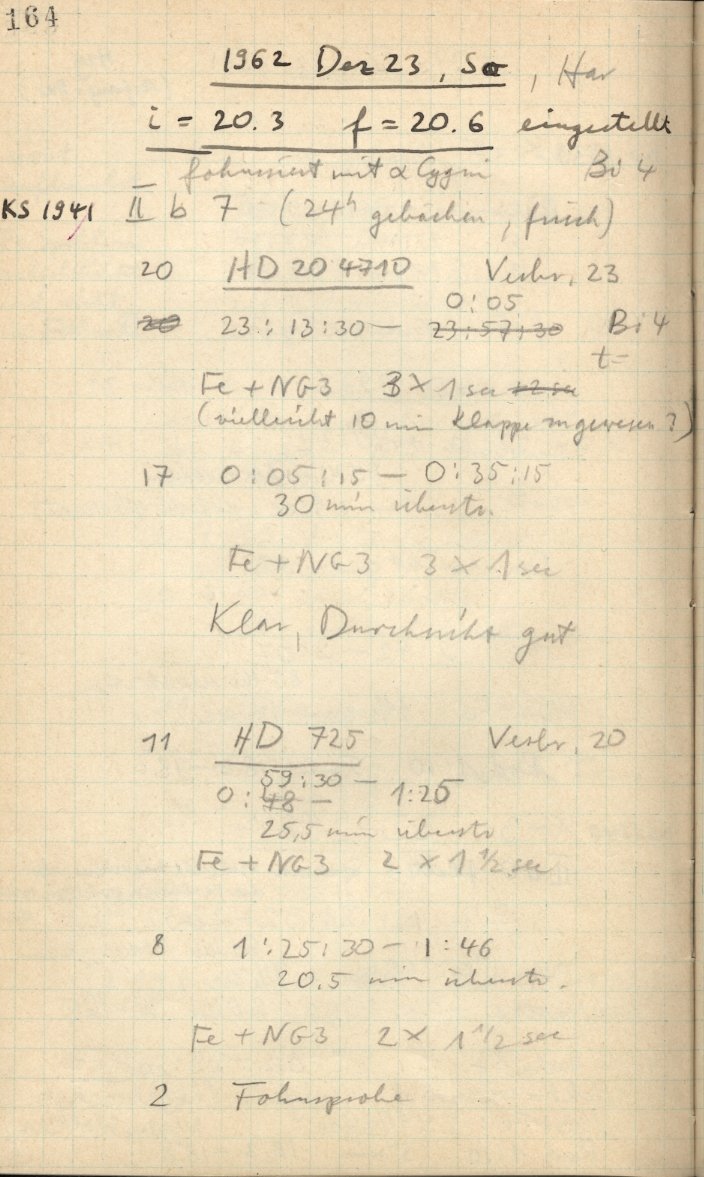 164
1962 Dez 23, So, Har
i = 20.3 f = 20.6 eingestellt
fokussiert mit α Cygni Bi 4
KS 1941 II b 7 (24h gebacken, frisch)
20 HD 204710 Verbr. 23
0:05
20 23:13:30 — 23:57:30 Bi 4
t=
Fe + NG3 3 × 1 sec
(vielleicht 10 min Klappe zu gewesen?)
17 0:05:15 — 0:35:15
30 min überstr.
Fe + NG3 3 × 1 sec
Klar, Durchsicht gut
11 HD 725 Verbr. 20
59:30 —
0:48 — 1:25
25,5 min überstr.
Fe + NG3 2 × 1 1/2 sec
8 1:25:30 — 1:46
20.5 min überstr.
Fe + NG3 2 × 1 1/2 sec
2 Fokusprobe